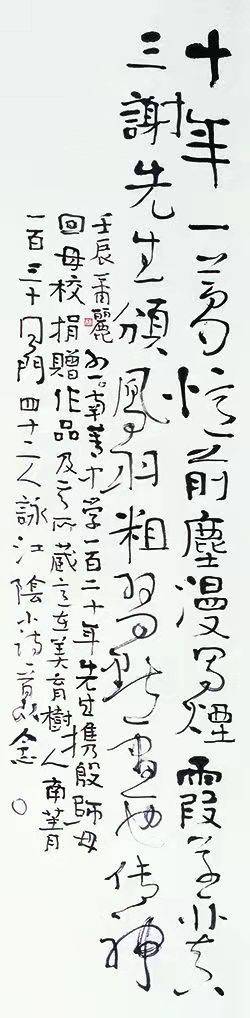 十年一夢憶前塵漫寫煙霞
三謝先生頒鳳羽粗習點畫也傳神
壬辰 麗 南菁中学一百二十年先生携殷師母
回母校捐贈作品及其所藏意在美育樹人南菁
一百三十同門四十二人詠江陰小詩一首 念